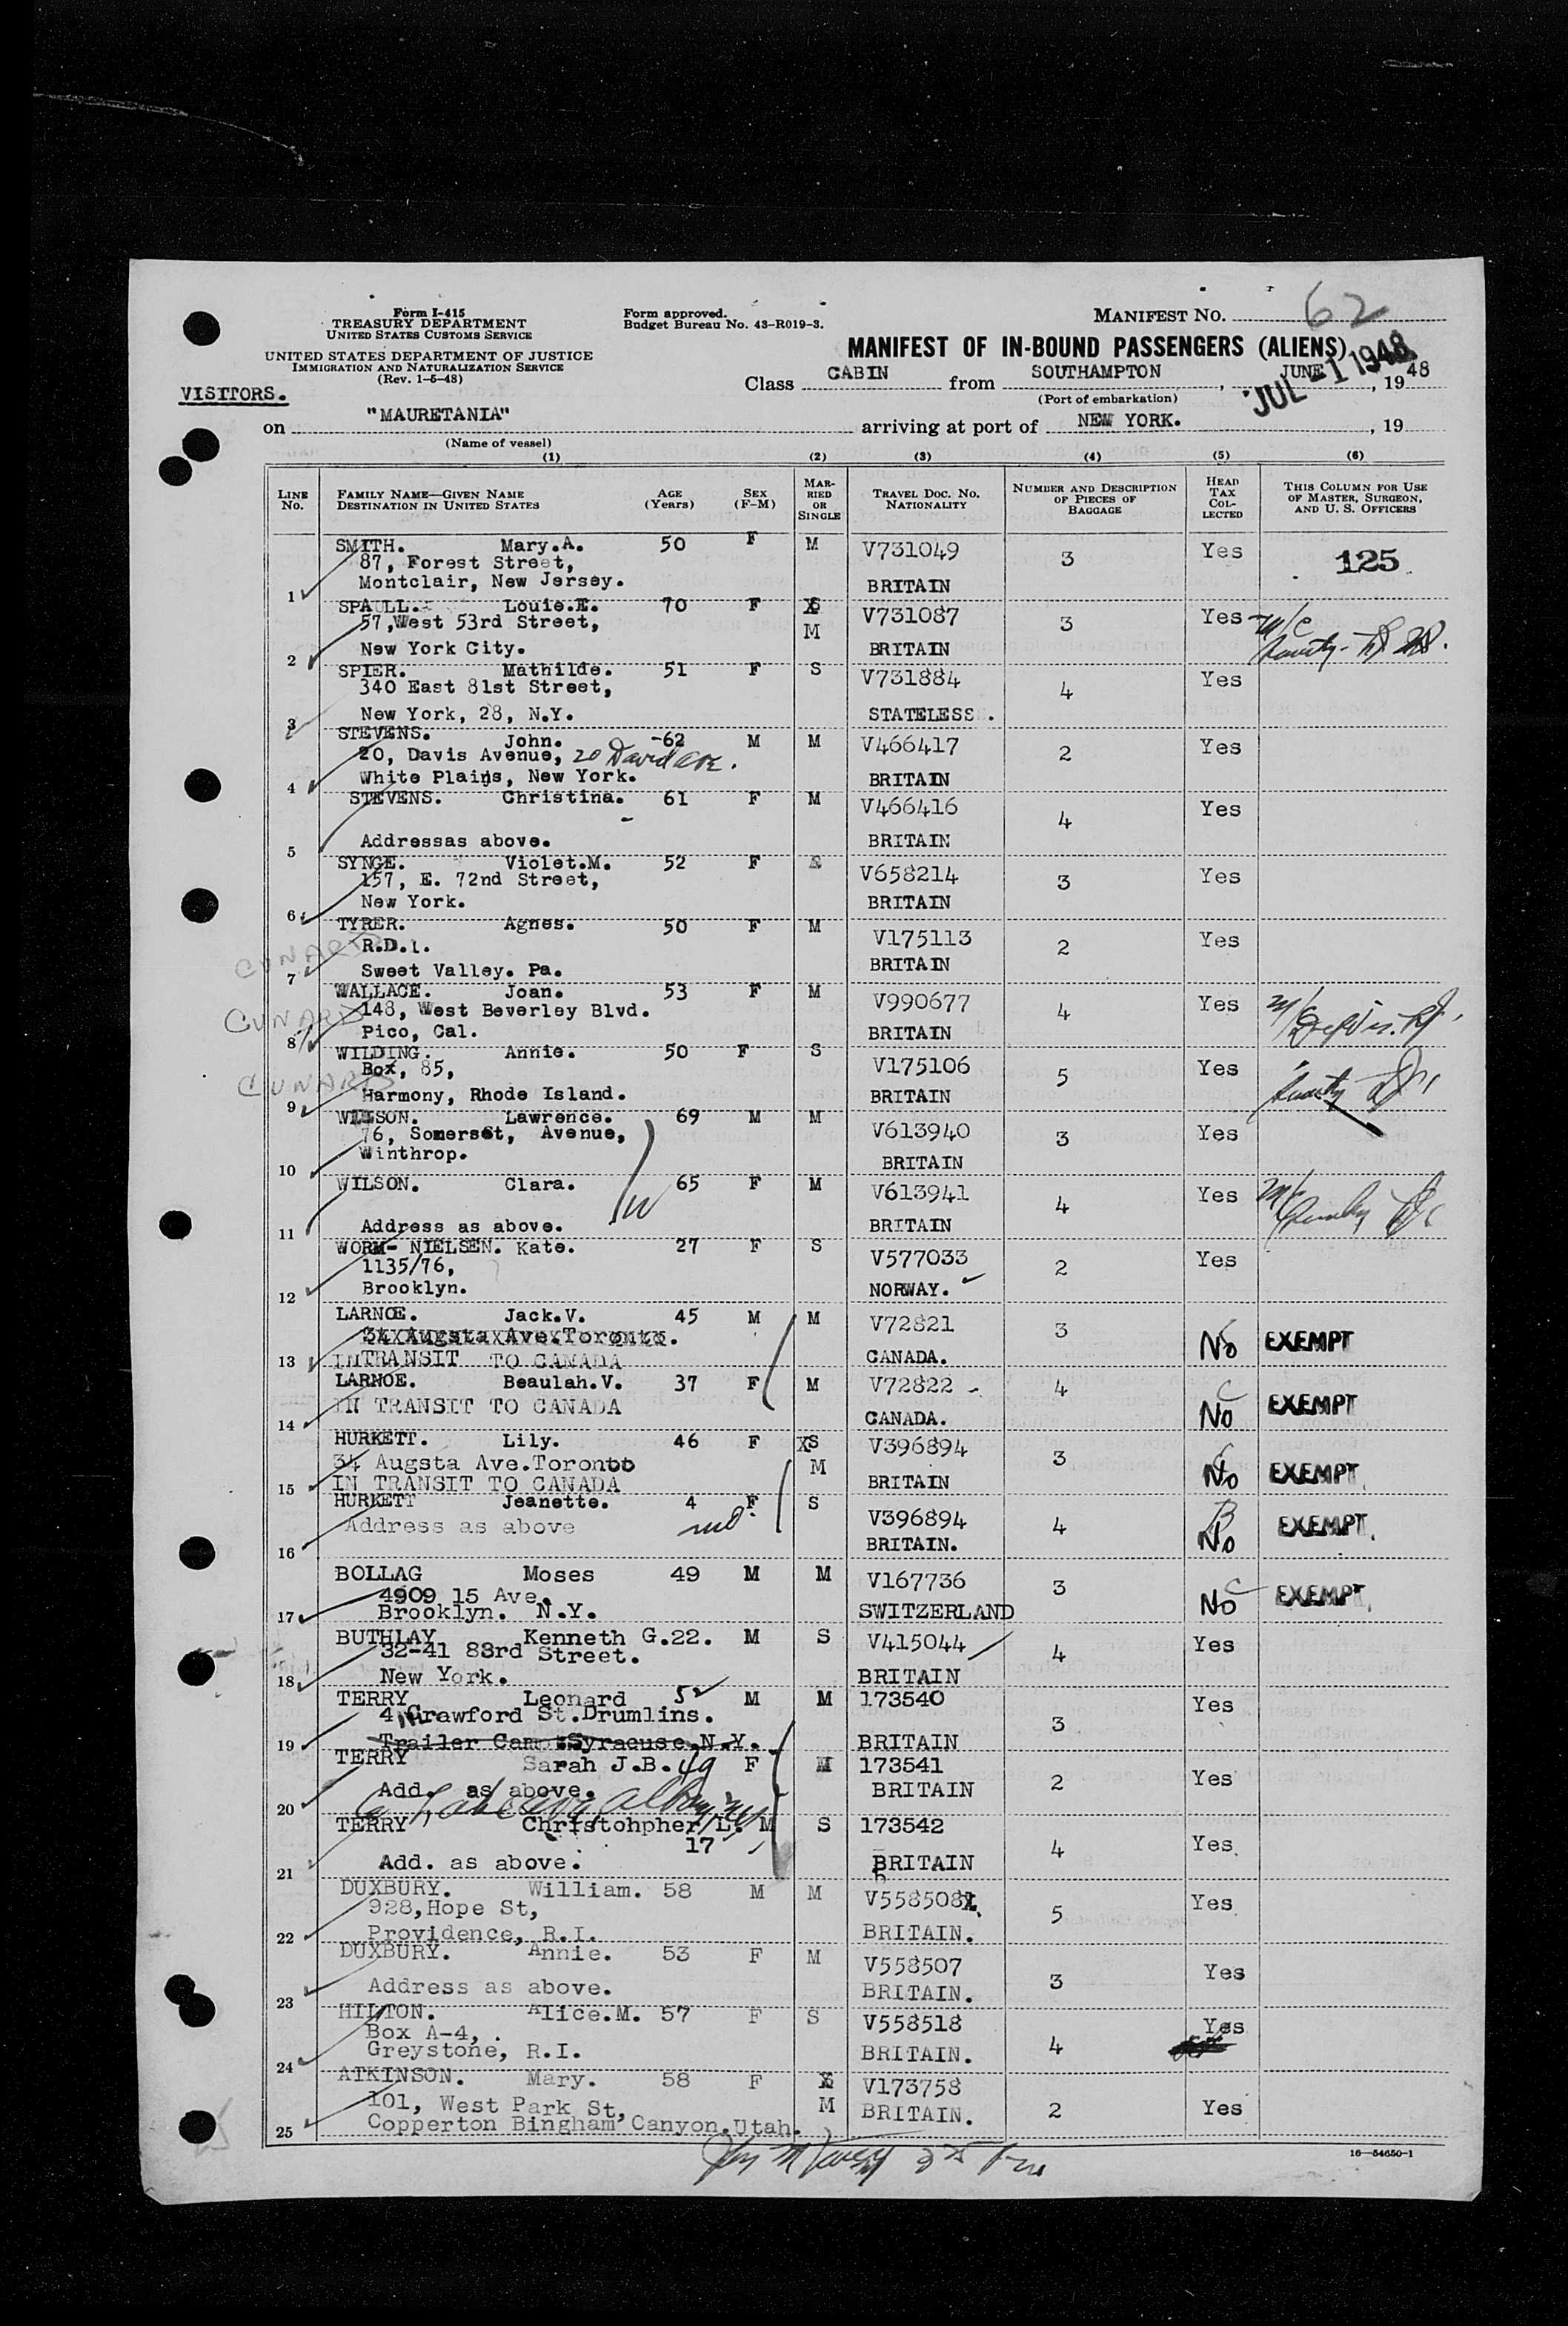 Form I-415
TREASURY DEPARTMENT
UNITED STATES CUSTOMS SERVICE
UNITED STATES DEPARTMENT OF JUSTICE
IMMIGRATION AND NATURALIZATION SERVICE
(Rev. 1-5-48)
Form approved.
Budget Bureau No. 43-R019-3.
MANIFEST NO. 62
MANIFEST OF IN-BOUND PASSENGERS (ALIENS)
Class CABIN from SOUTHAMPTON, JUNE, 1948
JUL -1 1948
(Port of embarkation)
VISITORS.
on "MAURETANIA" arriving at port of NEW YORK., 19
(Name of vessel)
(1) (2) (3) (4) (5) (6)
LINE NO. FAMILY NAME—GIVEN NAME DESTINATION IN UNITED STATES AGE (YEARS) SEX (F-M) MARRIED OR SINGLE TRAVEL DOC. NO. NATIONALITY NUMBER AND DESCRIPTION OF PIECES OF BAGGAGE HEAD TAX COLLECTED THIS COLUMN FOR USE OF MASTER, SURGEON, AND U. S. OFFICERS
SMITH. Mary.A. 50 F M V731049 3 Yes 125
87, Forest Street,
1 Montclair, New Jersey. BRITAIN
SPAULL. Louie.E. 70 F M V731087 3 Yes
57,West 53rd Street,
2 New York City. BRITAIN
SPIER. Mathilde. 51 F S V731884 4 Yes
340 East 81st Street,
3 New York, 28, N.Y. STATELESS.
STEVENS. John. 62 M M V466417 2 Yes
20, Davis Avenue, 20 David ave.
4 White Plains, New York. BRITAIN
STEVENS. Christina. 61 F M V466416 4 Yes
5 Addressas above. BRITAIN
SYNGE. Violet.M. 52 F V658214 3 Yes
157, E. 72nd Street,
6 New York. BRITAIN
TYRER. Agnes. 50 F M V175113 2 Yes
CUNARD R.D.1.
7 Sweet Valley. Pa. BRITAIN
WALLACE. Joan. 53 F M V990677 4 Yes
CUNARD 148, West Beverley Blvd.
8 Pico, Cal. BRITAIN
WILDING. Annie. 50 F S V175106 5 Yes
CUNARD Box, 85,
9 Harmony, Rhode Island. BRITAIN
WILSON. Lawrence. 69 M M V613940 3 Yes
76, Somerset, Avenue,
10 Winthrop. BRITAIN
WILSON. Clara. 65 F M V613941 4 Yes
11 Address as above. BRITAIN
WORM- NIELSEN. Kate. 27 F S V577033 2 Yes
1135/76,
12 Brooklyn. NORWAY.
LARNOE. Jack.V. 45 M M V72821 3 No EXEMPT
34 Augsta Ave.Toronto.
13 INTRANSIT TO CANADA CANADA.
LARNOE. Beaulah.V. 37 F M V72822 4 No EXEMPT
14 IN TRANSIT TO CANADA CANADA.
HURKETT. Lily. 46 F M V396894 3 No EXEMPT
34 Augsta Ave.Toronto
15 IN TRANSIT TO CANADA BRITAIN
HURKETT Jeanette. 4 F S V396894 4 No EXEMPT
Address as above
16 BRITAIN.
BOLLAG Moses 49 M M V167736 3 No EXEMPT
4909 15 Ave.
17 Brooklyn. N.Y. SWITZERLAND
BUTHLAY Kenneth G.22. M S V415044 4 Yes
32-41 83rd Street.
18 New York. BRITAIN
TERRY Leonard 52 M M 173540 3 Yes
4 Crawford St.Drumlins.
19 Trailer Camp.Syracuse.N.Y. BRITAIN
TERRY Sarah J.B. 49 F M 173541 2 Yes
20 Add. as above. BRITAIN
TERRY Christohpher/L. M S 173542 4 Yes
17
21 Add. as above. BRITAIN
DUXBURY. William. 58 M M V558508 5 Yes
928,Hope St,
22 Providence, R.I. BRITAIN.
DUXBURY. Annie. 53 F M V558507 3 Yes
23 Address as above. BRITAIN.
HILTON. Alice.M. 57 F S V558518 4 Yes
Box A-4,
24 Greystone, R.I. BRITAIN.
ATKINSON. Mary. 58 F M V173758 2 Yes
101, West Park St,
25 Copperton Bingham Canyon.Utah. BRITAIN.
16—54650-1